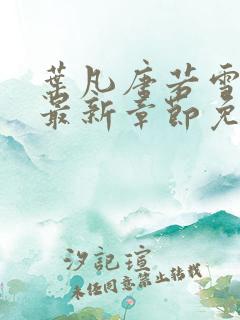 葉凡唐若雪
最新章節免
汐記瑄
未経同意禁止轉載